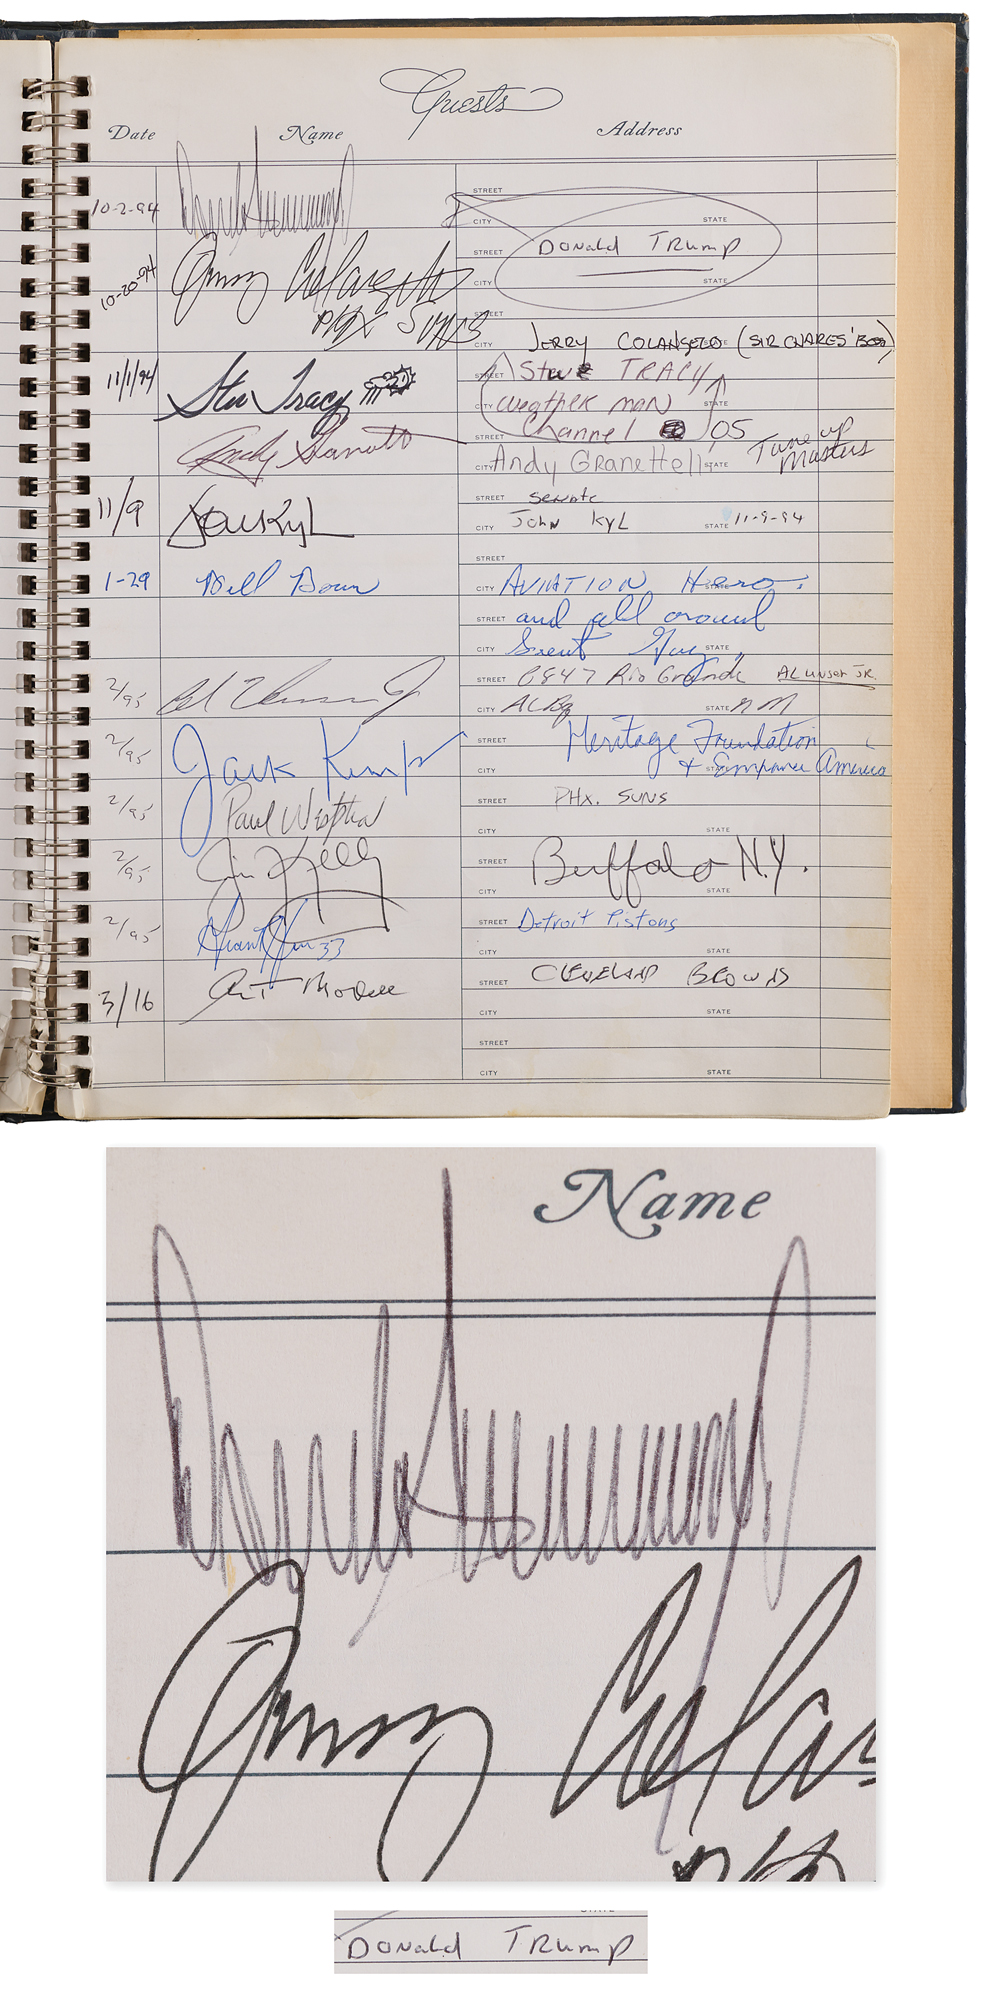 Guests
Date Name Address
10-2-94 STREET
CITY STATE
STREET Donald Trump
10-20-94 CITY STATE
STREET
PHX SUNS CITY Jerry Colangelo (Sir Charles' Boss)
11/1/94 Steve Tracy STREET Steve TRACY
CITY Weather man STATE
STREET Channel 05
CITY Andy Granettelli STATE Tune up Masters
11/9 Jon Kyl STREET Senate
CITY John Kyl STATE 11-9-94
STREET
1-29 CITY AVIATION Hero
STREET and all around
CITY Great Guy STATE
2/95 STREET 8847 Rio Grande AL UNSER JR.
CITY ALBq STATE NM
2/95 Jack Kemp STREET Heritage Foundation
CITY + Empower America
2/95 Paul Westphal STREET PHX. SUNS
CITY STATE
2/95 Jim Kelly STREET Buffalo N.Y.
CITY STATE
2/95 Grant Hill 33 STREET Detroit Pistons
CITY STATE
3/16 Art Modell STREET CLEVELAND BROWNS
CITY STATE
STREET
CITY STATE
Name
Donald Trump